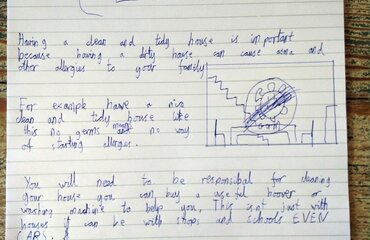 Having a clean and tidy house is important
because having a dirty house can cause asma and
other allergies to your family
For example have a nice
clean and tidy house like
this no germs means no way
of starting allergies.
You will need to be responsibal for cleaning
your house you can buy a useful hoover or
washing machine to help you, This is not just with
houses it can be with shops and schools EVEN
CARS.